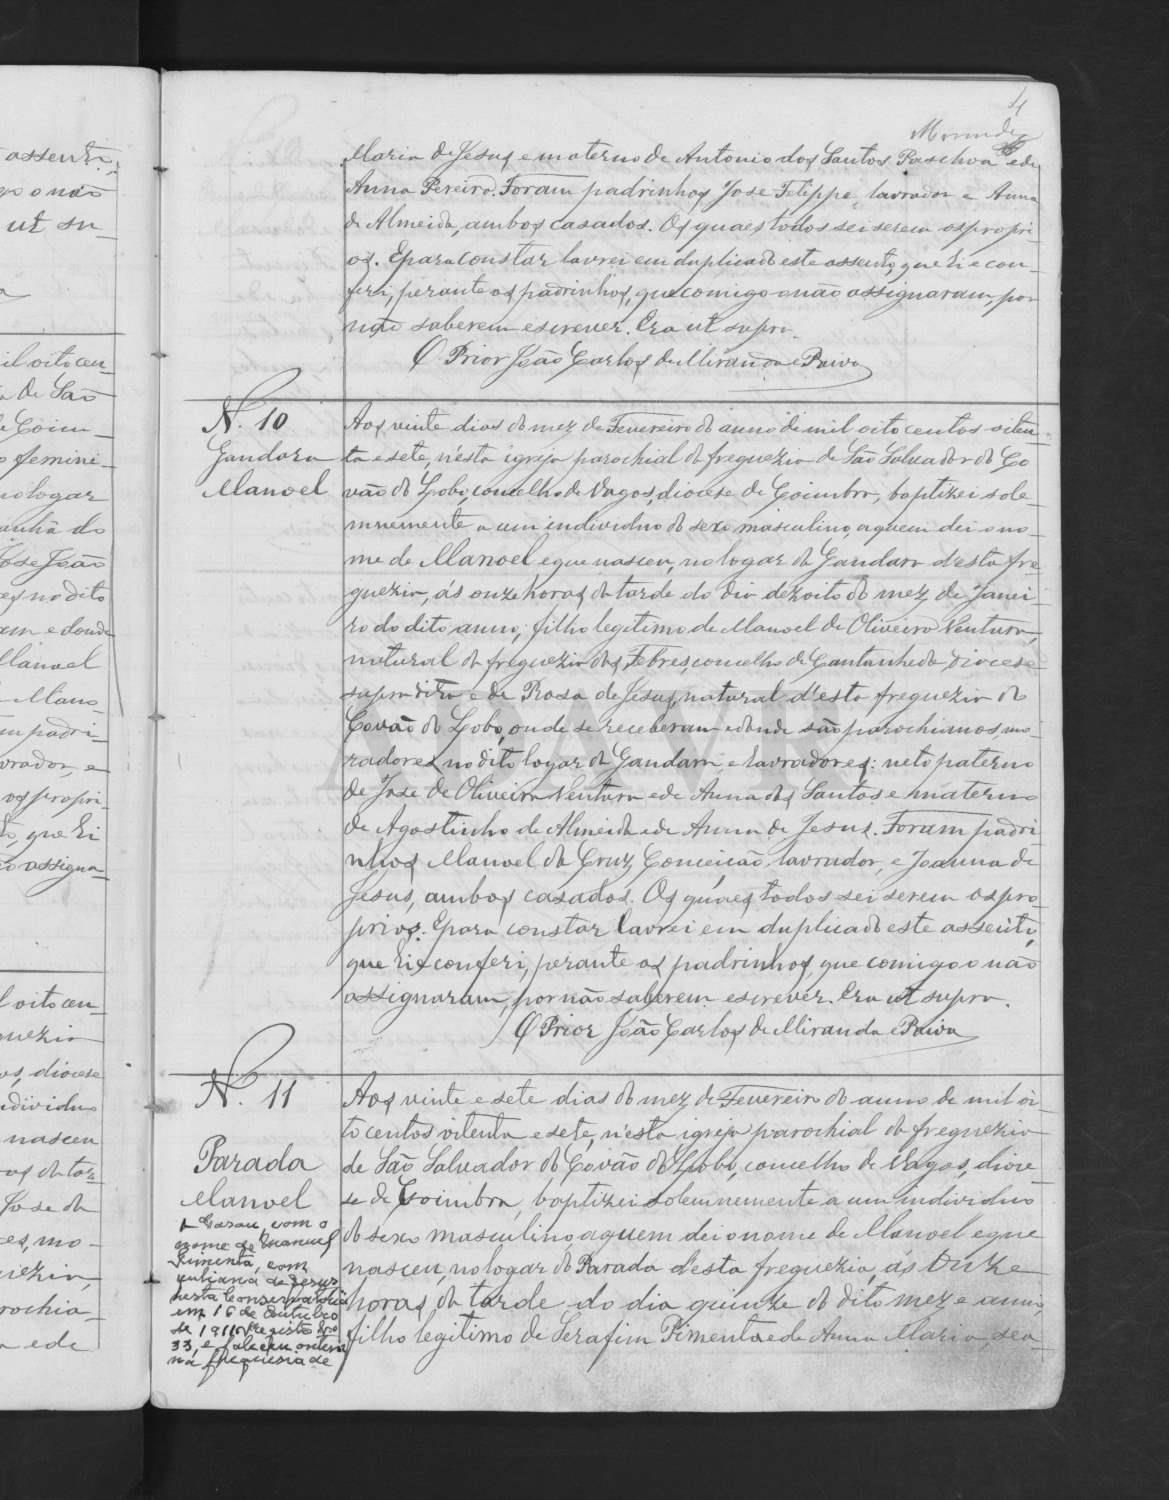 4
Miranda
Maria de Jesus, e materno de Antonio dos Santos Paschoa e de
Anna Pereira. Foram padrinhos José Felippe, lavrador e Anna
de Almeida, ambos casados. Os quaes todos sei serem os propri-
os. E para constar lavrei em duplicado este assento, que li e con-
feri, perante os padrinhos, que comigo o não assignaram, por
não saberem escrever. Era ut supra.
O Prior João Carlos de Miranda e Paiva
N. 10
Gandara
Manoel
Aos vinte dias do mez de Fevereiro do anno de mil oito centos oiten-
ta e sete, n'esta igreja parochial da freguezia de São Salvador do Co
vão do Lobo, concelho de Vagos, diocese de Coimbra, baptizei sole-
mnemente a um individuo do sexo masculino, a quem dei o no-
me de Manoel e que nasceu, no logar da Gandara d'esta fre-
guezia, ás onze horas da tarde do dia dezoito do mez de Janei-
ro do dito anno, filho legitimo de Manoel de Oliveira Ventura,
natural da freguezia das Febres, concelho de Cantanhede, diocese
supradita e de Rosa de Jesus, natural d'esta freguezia do
Covão do Lobo, onde se receberam e donde são parochianos, mo-
radores no dito logar da Gandara, e lavradores: neto paterno
de Jose de Oliveira Ventura e de Anna dos Santos e materno
de Agostinho de Almeida e de Anna de Jesus. Foram padri-
nhos Manoel da Cruz Conceição, lavrador, e Joanna de
Jesus, ambos casados. Os quaes todos sei serem os pro-
prios. E para constar lavrei em duplicado este assento,
que li e conferi, perante os padrinhos, que comigo o não
assignaram, por não saberem escrever. Era ut supra.
O Prior João Carlos de Miranda e Paiva
N. 11
Parada
Manoel
Casou, com o
nome de Manuel
Pimenta, com
Juliana de Jesus
nesta Conservatoria
em 16 de Outubro
de 1911 Registo nro
33, e faleceu ontem
na freguesia de
Aos vinte e sete dias do mez de Fevereiro do anno de mil oi-
to centos oitenta e sete, n'esta igreja parochial da freguezia
de São Salvador do Covão do Lobo, concelho de Vagos, dioce-
se de Coimbra, baptizei solemnemente a um individuo
do sexo masculino, a quem dei o nome de Manoel e que
nasceu, no logar da Parada d'esta freguezia, ás onze
horas da tarde do dia quinze do dito mez e anno,
filho legitimo de Serafim Pimenta e de Anna Maria, sea-